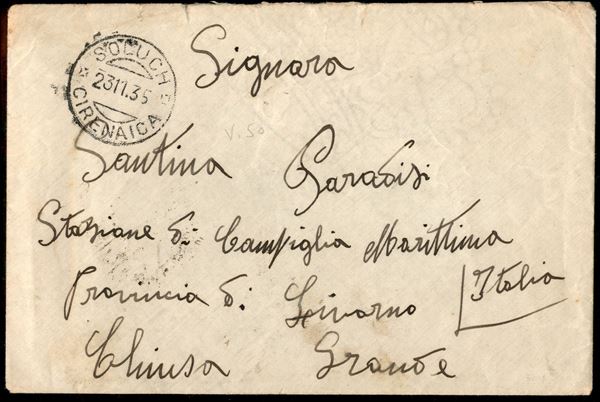 SOLUCH
23.11.35
CIRENAICA
Signora
V. 50
Santina Paradisi
Stazione di Campiglia Marittima
Provincia di Livorno Italia
Chiusa Grande